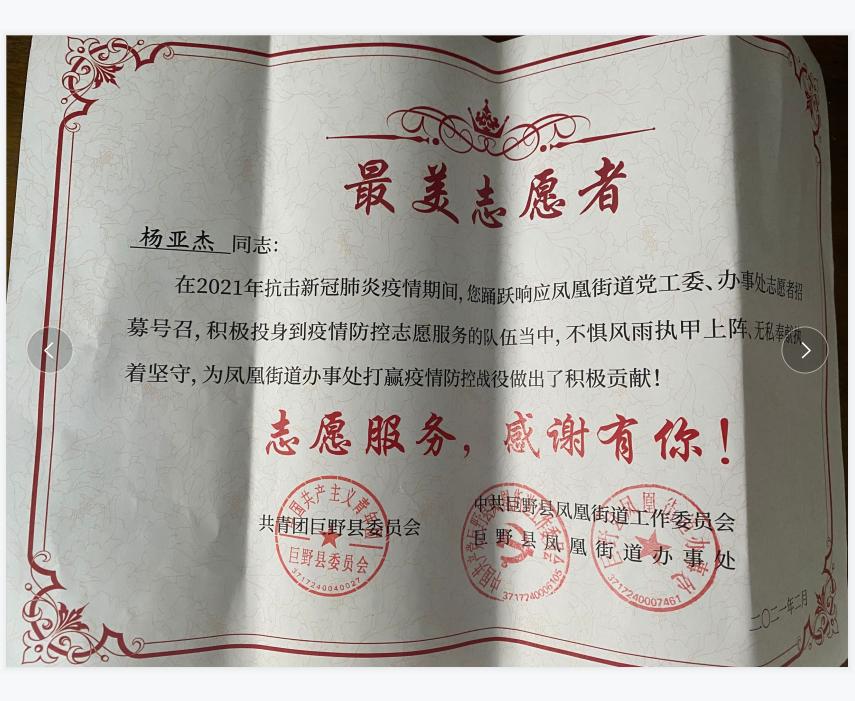 最美志愿者
杨亚杰 同志:
在2021年抗击新冠肺炎疫情期间,您踊跃响应凤凰街道党工委、办事处志愿者招
募号召,积极投身到疫情防控志愿服务的队伍当中,不惧风雨执甲上阵、无私奉献执
着坚守,为凤凰街道办事处打赢疫情防控战役做出了积极贡献!
志愿服务,感谢有你!
共青团巨野县委员会
中共巨野县凤凰街道工作委员会
巨野县凤凰街道办事处
中国共产主义青年团
巨野县委员会
3717240040027
中国共产党巨野县凤凰街道工作委员会
3717240006105
巨野县凤凰街道办事处
3717240007461
二〇二一年二月